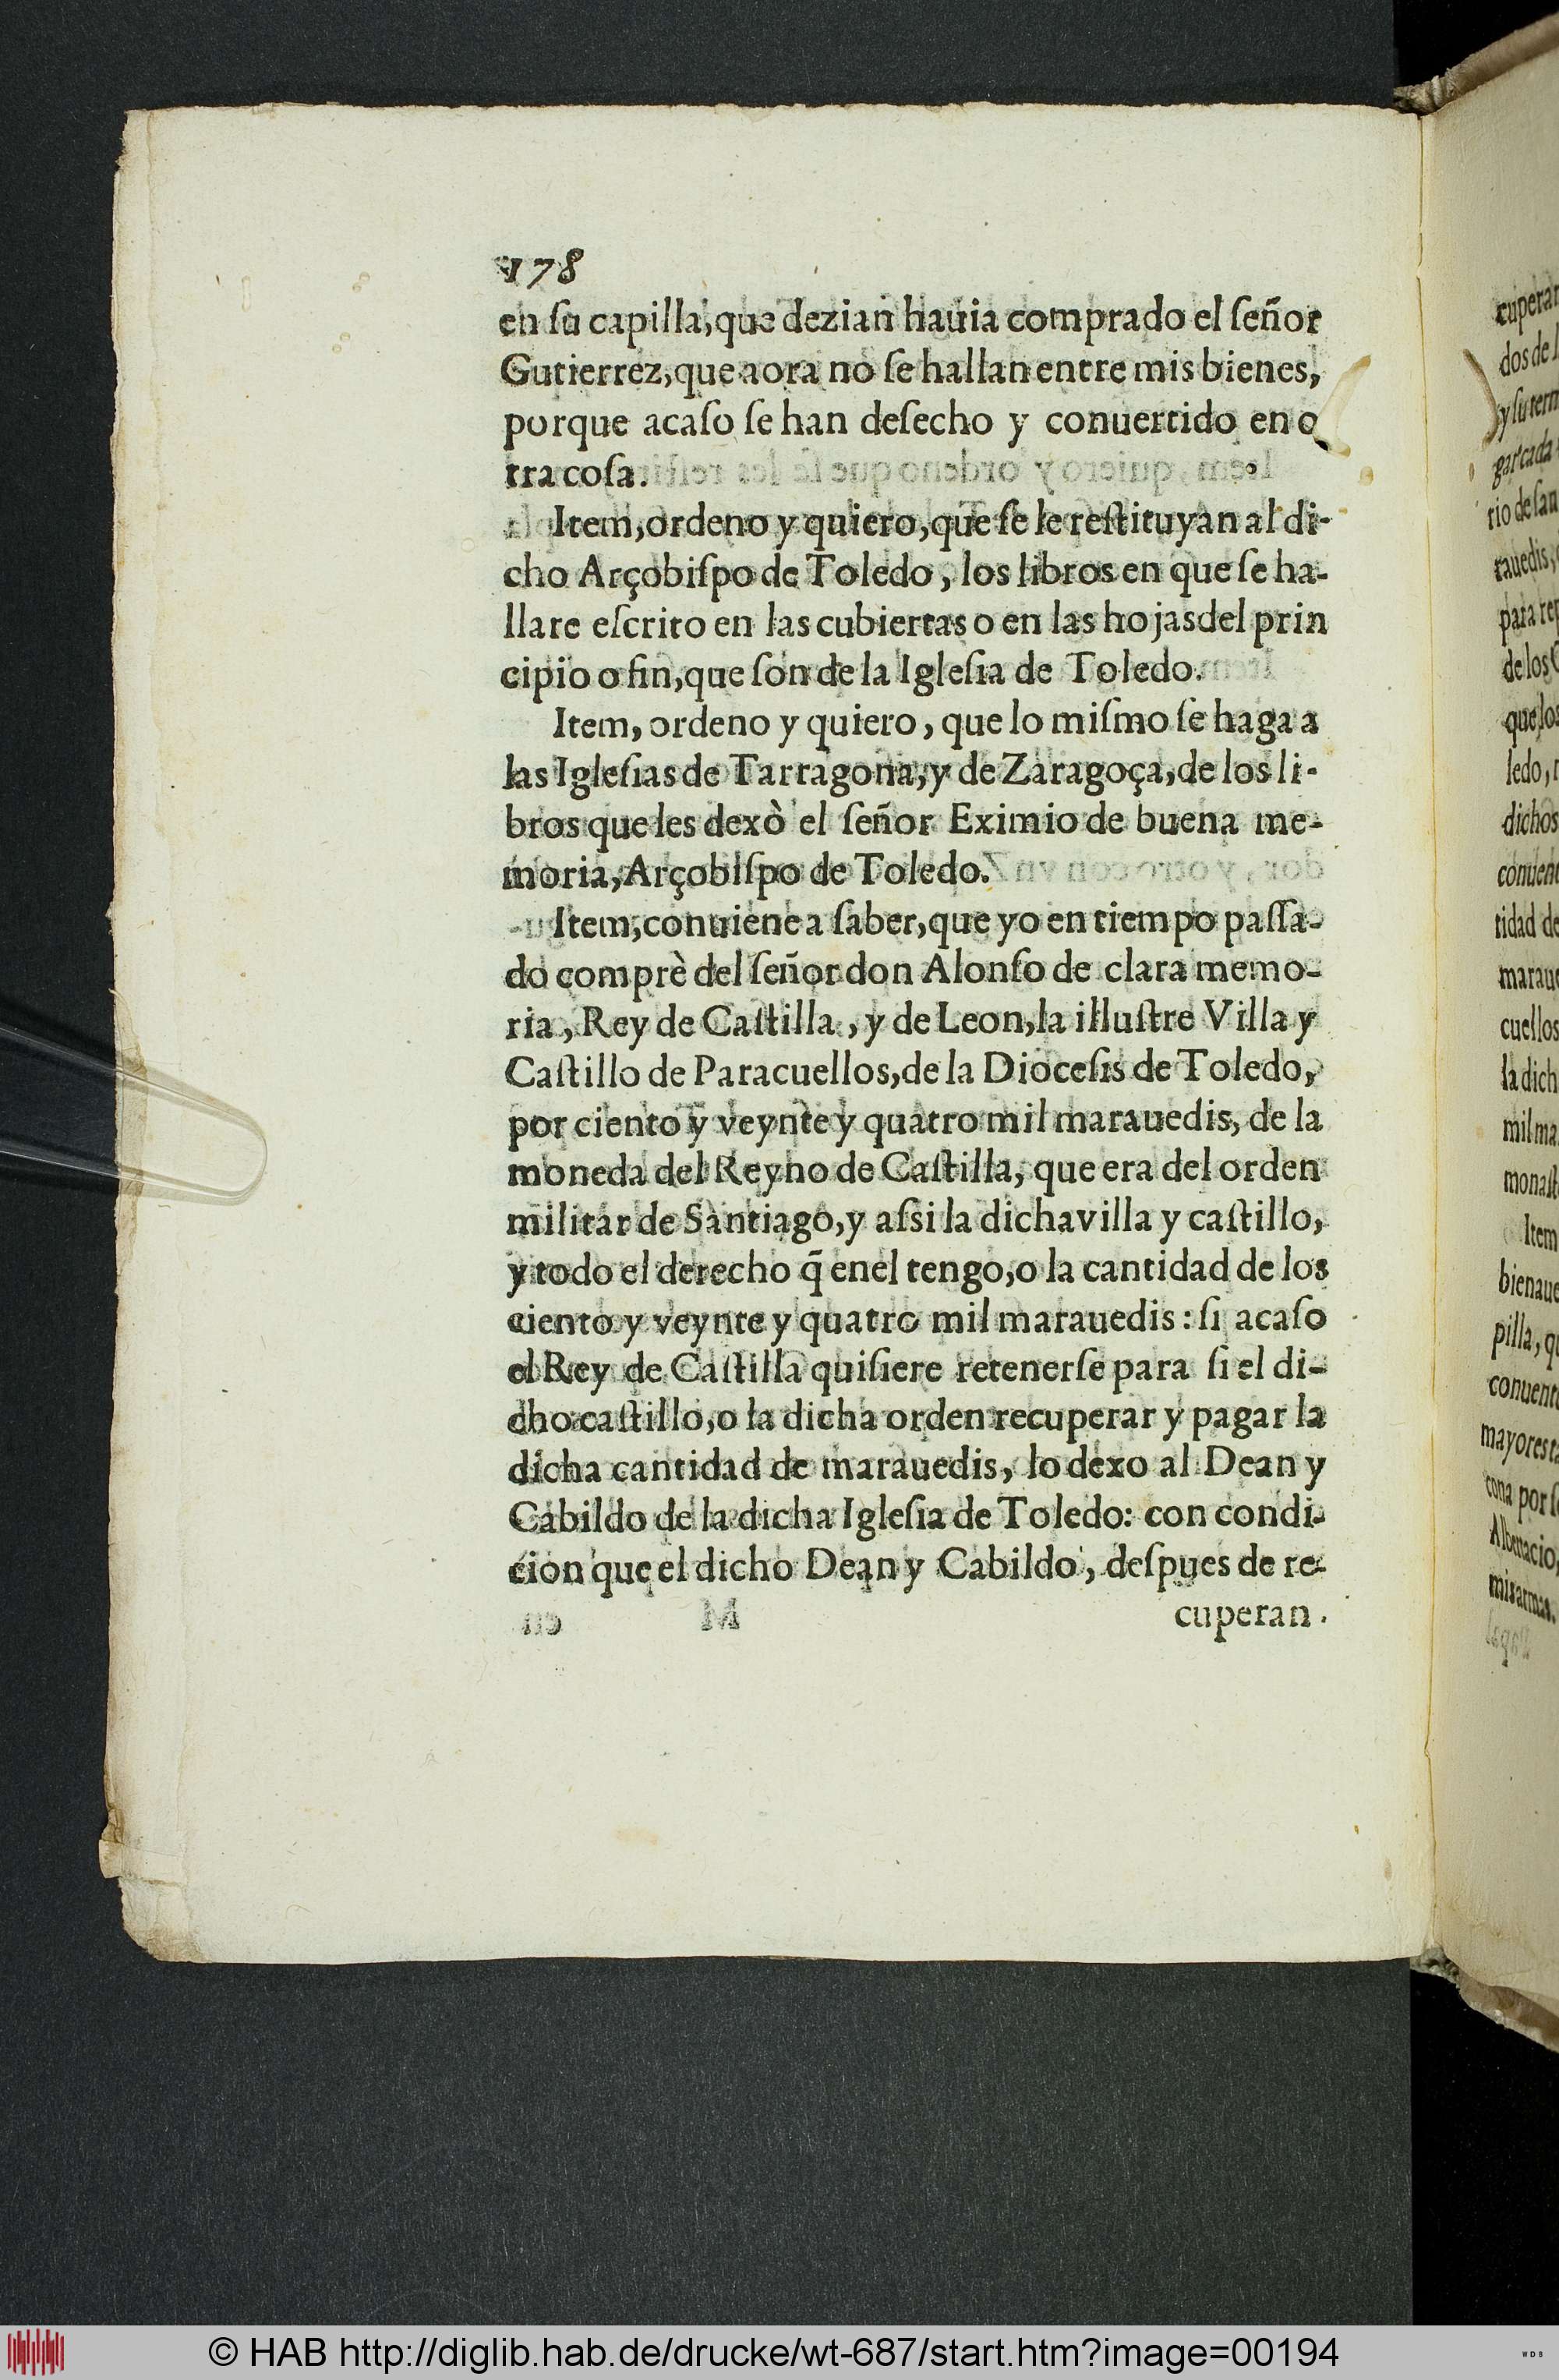 178
en ſu capilla, que dezian hauia comprado el ſeñor
Gutierrez, que aora no ſe hallan entre mis bienes,
porque acaſo ſe han deſecho y conuertido en o
tra coſa.
Item, ordeno y quiero, que ſe le reſtituyan al di-
cho Arçobiſpo de Toledo, los libros en que ſe ha-
llare eſcrito en las cubiertas o en las hojas del prin
cipio o fin, que ſon de la Igleſia de Toledo.
Item, ordeno y quiero, que lo miſmo ſe haga a
las Igleſias de Tarragona, y de Zaragoça, de los li-
bros que les dexò el ſeñor Eximio de buena me-
moria, Arçobiſpo de Toledo.
Item, conuiene a ſaber, que yo en tiempo paſſa-
do comprè del ſeñor don Alonſo de clara memo-
ria, Rey de Caſtilla, y de Leon, la illuſtre Villa y
Caſtillo de Paracuellos, de la Dioceſis de Toledo,
por ciento y veynte y quatro mil marauedis, de la
moneda del Reyno de Caſtilla, que era del orden
militar de Santiago, y aſsi la dicha villa y caſtillo,
y todo el derecho q̃ en el tengo, o la cantidad de los
ciento y veynte y quatro mil marauedis: ſi acaſo
el Rey de Caſtilla quiſiere retenerſe para ſi el di-
cho caſtillo, o la dicha orden recuperar y pagar la
dicha cantidad de marauedis, lo dexo al Dean y
Cabildo de la dicha Igleſia de Toledo: con condi-
cion que el dicho Dean y Cabildo, deſpues de re-
cuperan
cuperar
dos de
y ſu term
gar cada
rio de ſan
rauedis,
para rep
de los
que los
ledo,
dichos
conuent
tidad de
maraue
cuellos
la dich
mil ma
monaſt
Item
bienaue
pilla, qu
conuent
mayores
por
mis armas.
© HAB http://diglib.hab.de/drucke/wt-687/start.htm?image=00194
WDB